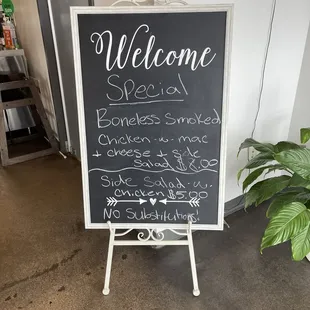 Welcome
Special
Boneless Smoked
Chicken -w- mac
+ cheese + Side
Salad $8.00
Side Salad -w-
chicken $5.00
No Substitutions!